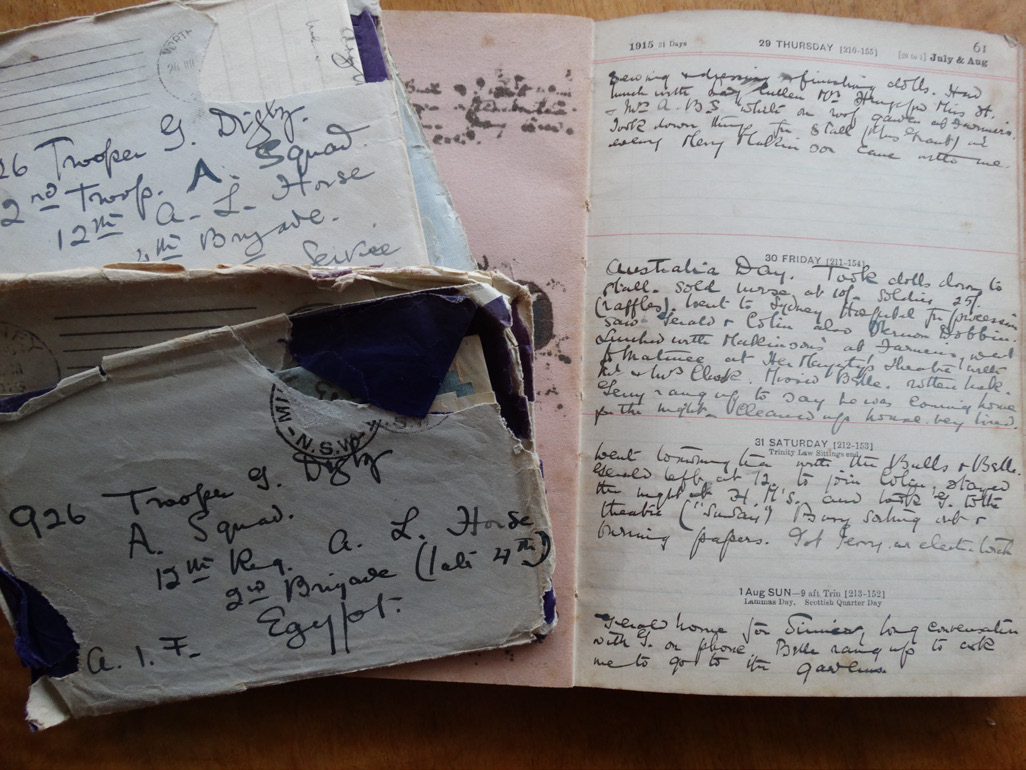 26 Trooper G. Digby.
2nd Troop. A. Squad.
12th A. L. Horse
4th Brigade.
Service
MI - N.S.W
926 Trooper G. Digby
A. Squad.
12th Reg. A. L. Horse
2nd Brigade (late 4th)
Egypt.
A. I. F.
61
1915 21 Days 29 THURSDAY [210-155] July & Aug
sewing & dressing & finishing dolls. Had
lunch with Lady Cullen Mrs
Mrs A. B. S. while on roof garden at Farmers.
Took down things for stall
every came with me.
30 FRIDAY [211-154]
Australia Day. Took dolls down to
stall. Sold nurse at 10/- soldier 25/-
(raffles). Went to Sydney Hospital for procession
saw Gerald & Colin also Vernon Dobbin.
Lunched with Malkinson's at Farmers, went
to Matinee at Her Majesty's Theatre with
Mr & Mrs Clark. Missed Belle. rotten luck.
Gerry rang up to say he was coming home
for the night. Cleaned up house. very tired.
31 SATURDAY [212-153]
Trinity Law Sittings end.
Went to morning tea with the Bulls & Belle.
Gerald left at 12. to join Colin, stayed
the night at H. M's. and took G. to the
theatre ("Sunday") Busy sorting out &
burning papers. Got Gerry an elect. torch
1 Aug SUN—9 aft Trin [213-152]
Lammas Day. Scottish Quarter Day
Gerald home for long conversation
with G. on phone. Belle rang up to ask
me to go to the gardens.